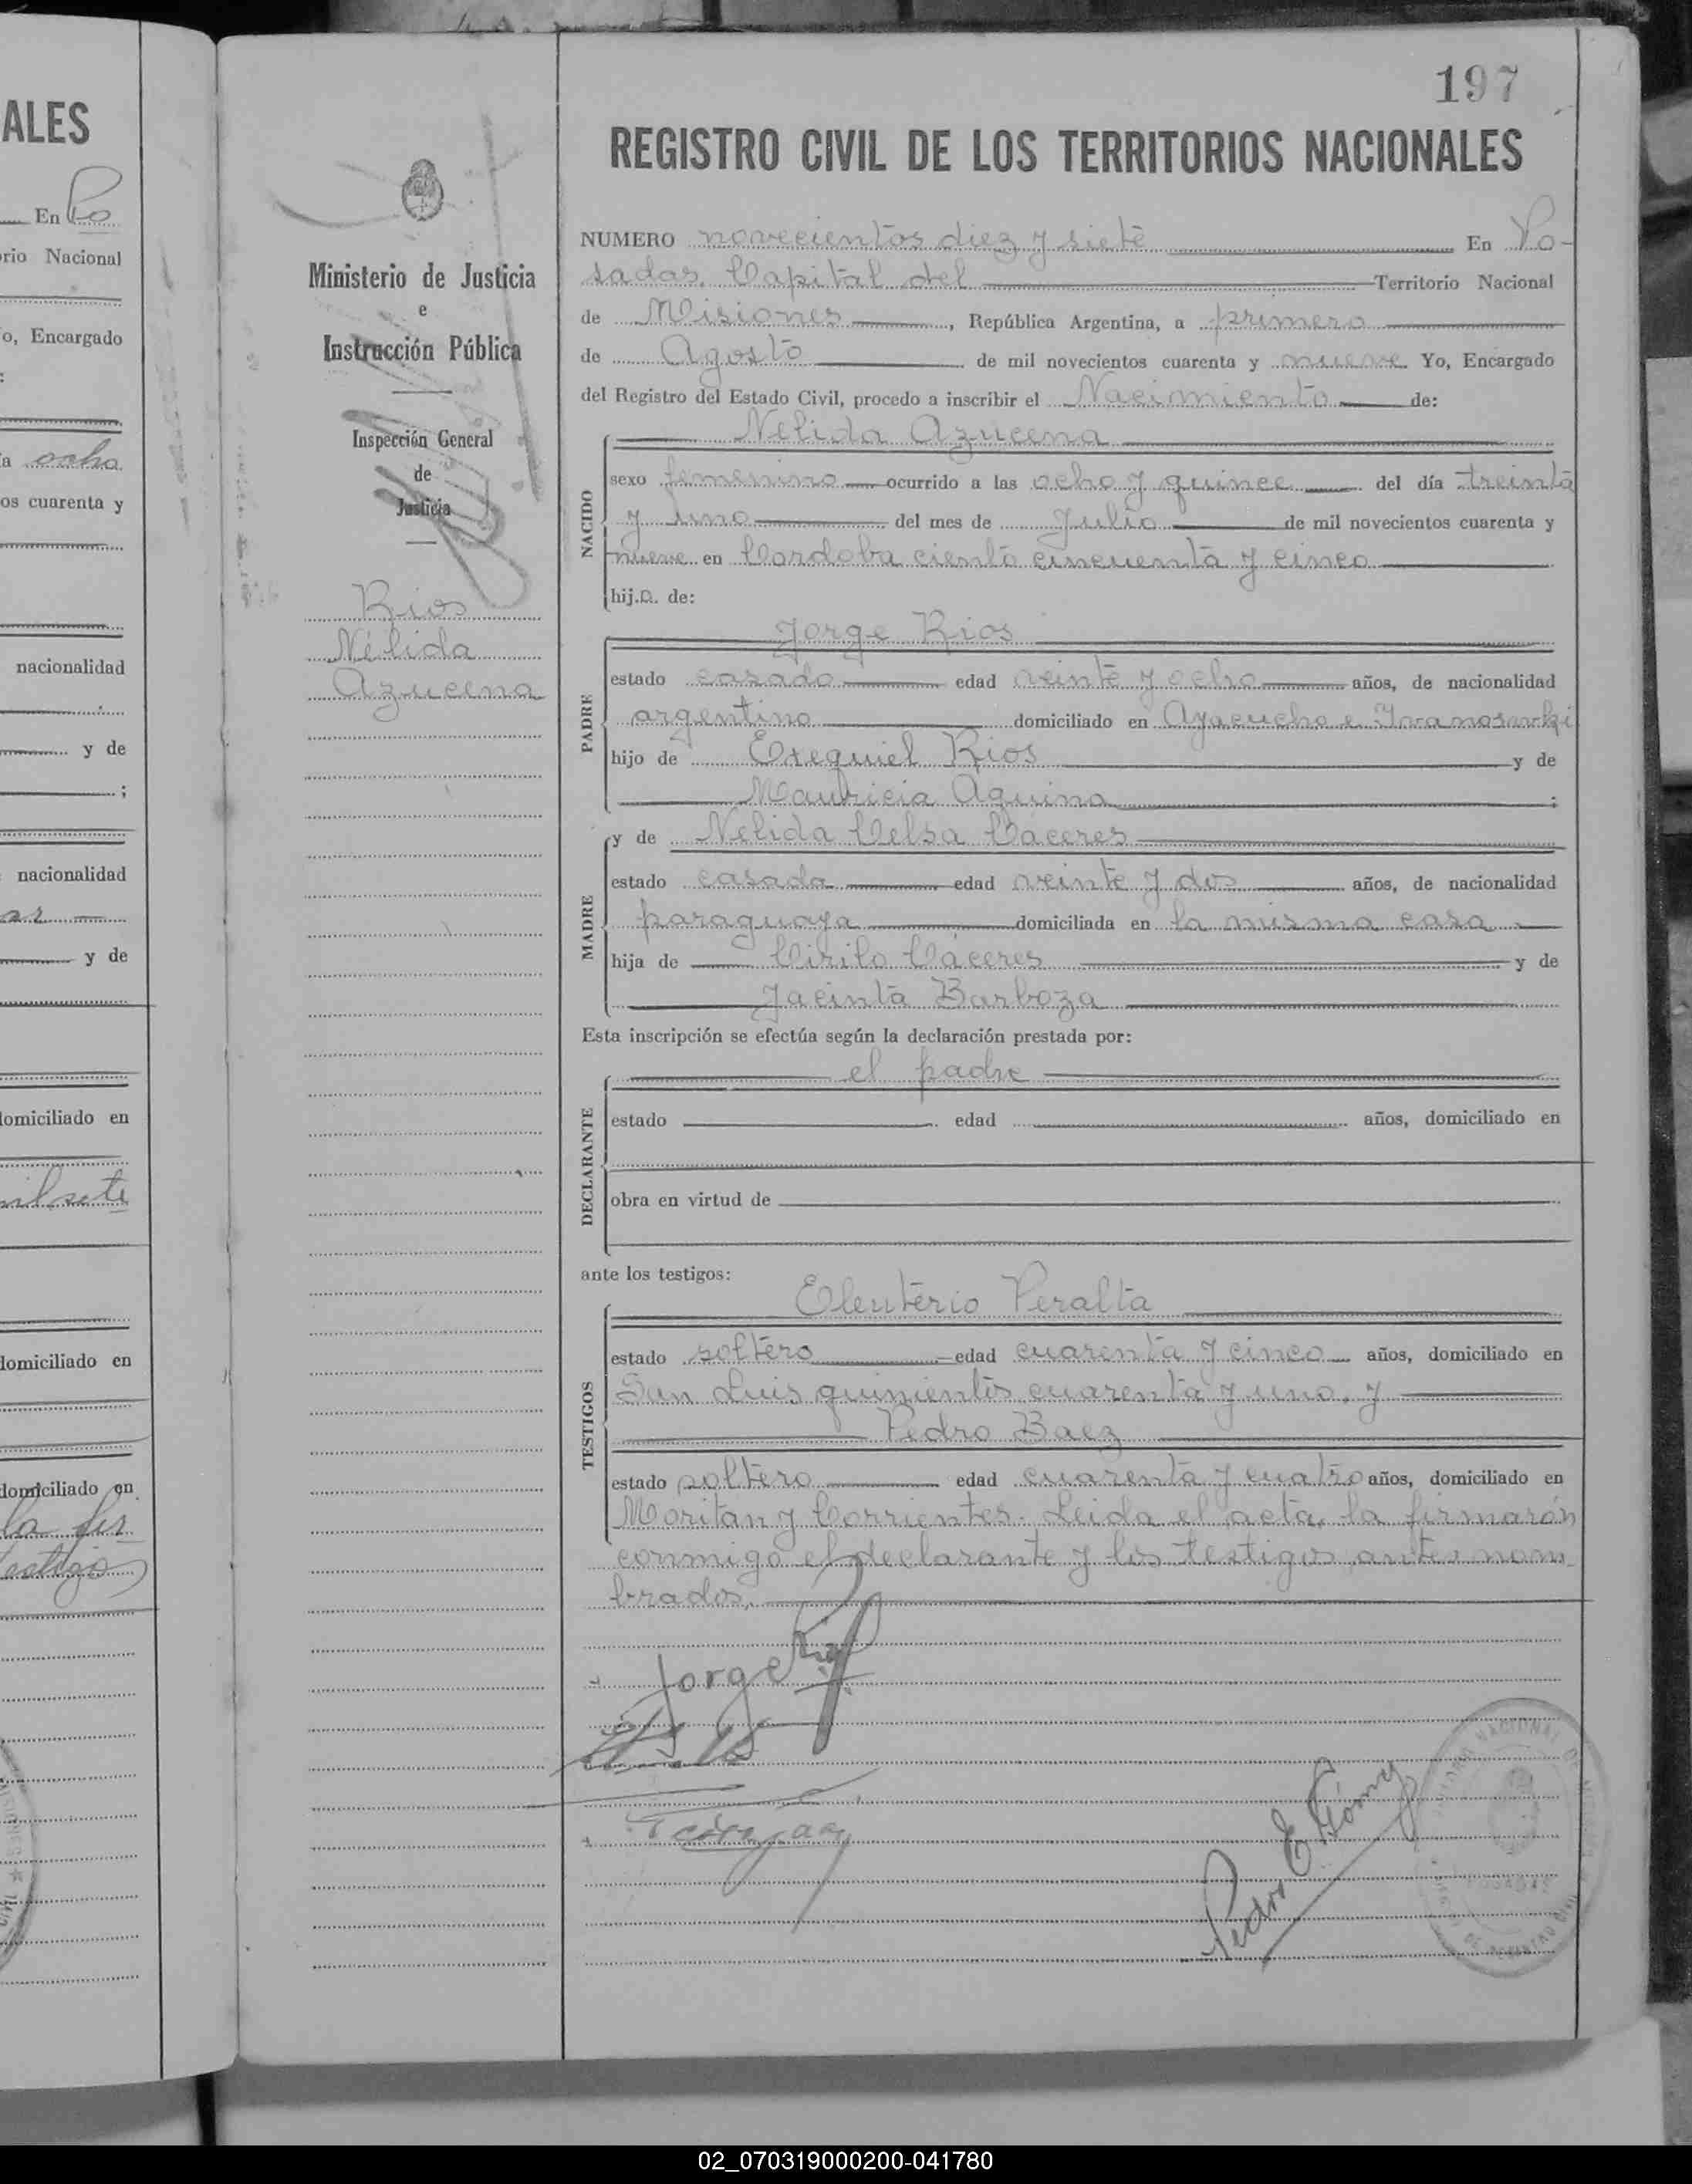 ALES
En Po
rio Nacional
o, Encargado
:
a ocho
os cuarenta y
nacionalidad
y de
;
nacionalidad
ar
y de
domiciliado en
mil sete
domiciliado en
domiciliado en
la fir
testigos
Ministerio de Justicia
e
Instrucción Pública
Inspección General
de
Justicia
Rios
Nélida
Azucena
197
REGISTRO CIVIL DE LOS TERRITORIOS NACIONALES
NUMERO novecientos diez y siete En Po-
sadas, Capital del Territorio Nacional
de Misiones, República Argentina, a primero
de Agosto de mil novecientos cuarenta y nueve Yo, Encargado
del Registro del Estado Civil, procedo a inscribir el Nacimiento de:
NACIDO
Nélida Azucena
sexo femenino ocurrido a las ocho y quince del día treinta
y uno del mes de Julio de mil novecientos cuarenta y
nueve en Cordoba ciento cincuenta y cinco
hija de:
PADRE
Jorge Rios
estado casado edad veinte y ocho años, de nacionalidad
argentino domiciliado en Ayacucho e Ivanoswki
hijo de Exequiel Rios y de
Mauricia Aquino ;
MADRE
y de Nelida Celsa Caceres
estado casada edad veinte y dos años, de nacionalidad
paraguaya domiciliada en la misma casa
hija de Cirilo Cáceres y de
Jacinta Barboza
Esta inscripción se efectúa según la declaración prestada por:
DECLARANTE
el padre
estado edad años, domiciliado en
obra en virtud de
ante los testigos:
TESTIGOS
Eleuterio Peralta
estado soltero edad cuarenta y cinco años, domiciliado en
San Luis quinientos cuarenta y uno, y
Pedro Baez
estado soltero edad cuarenta y cuatro años, domiciliado en
Moritan y Corrientes. Leida el acta, la firmarón
conmigo el declarante y los testigos antes nom-
brados,
Jorge Rios
Pedro E Gómez
02_070319000200-041780